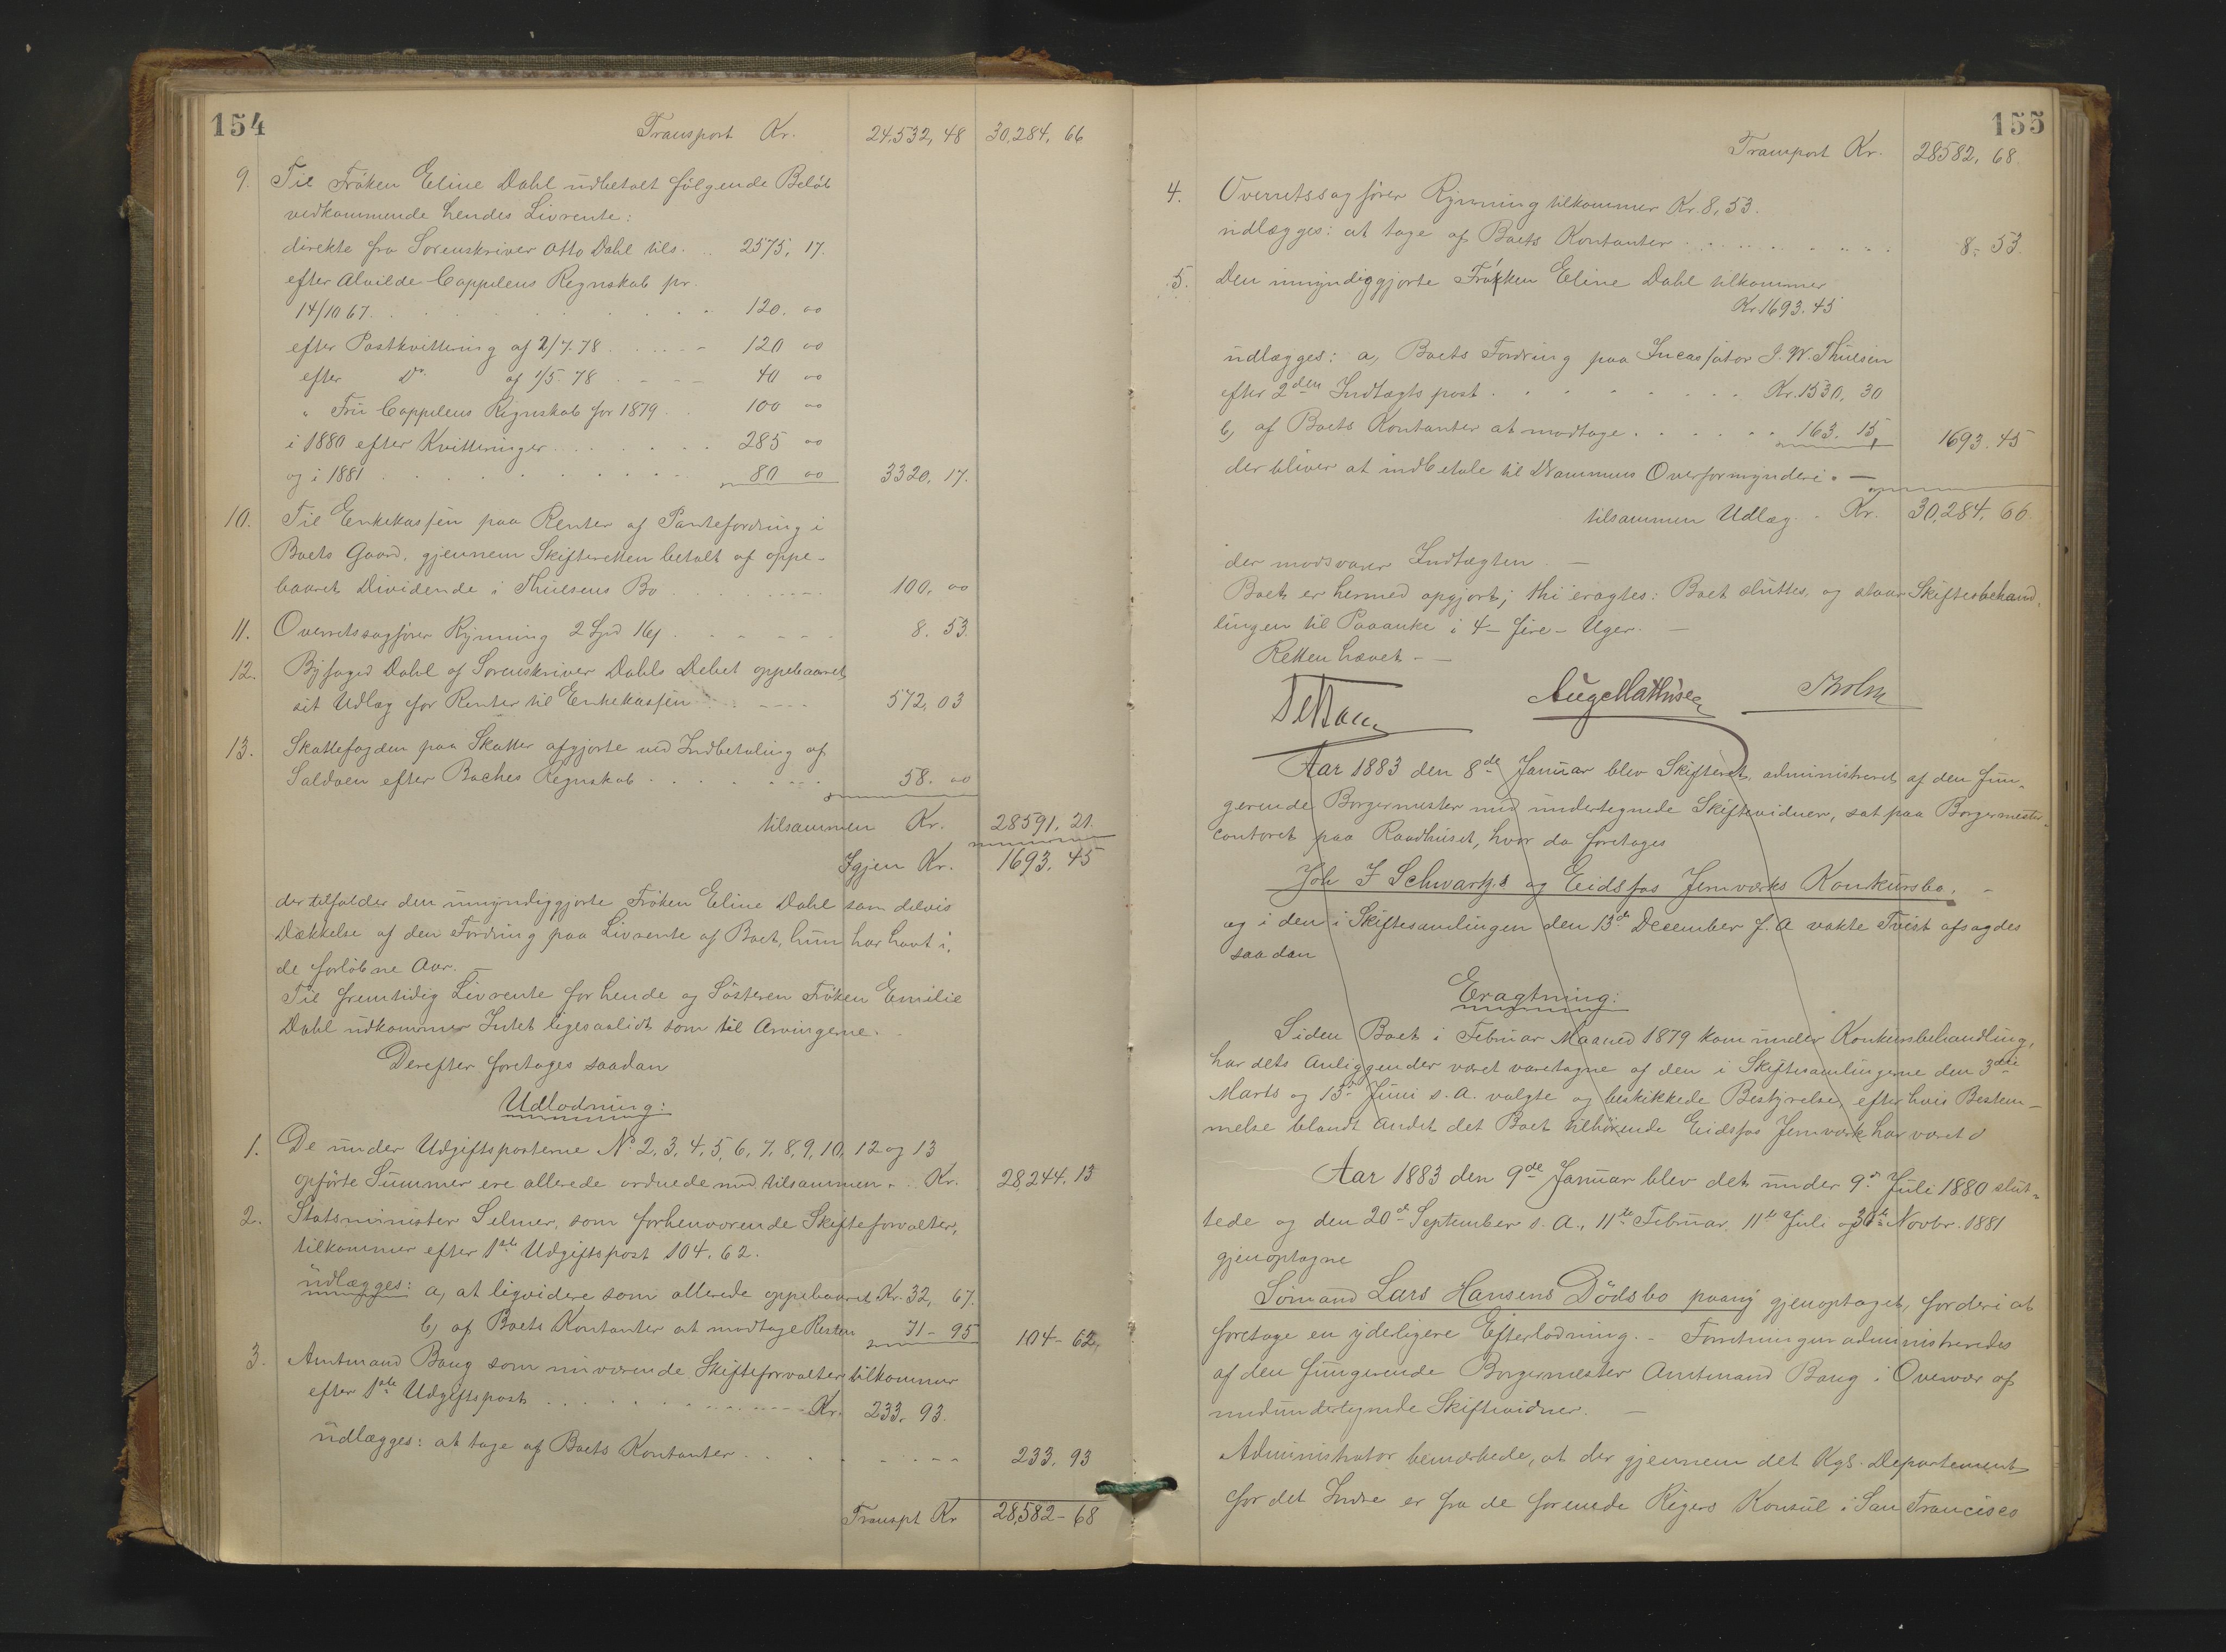 154
Transport Kr. 24,532,48 30,284,66
9. Til Fröken Eline Dahl udbetalt fölgende Belöb
vedkommende hendes Livrente:
direkte fra Sorenskriver Otto Dahl tils. .. 2575, 17.
efter Alvilde Cappelens Regnskab pr.
14/10 67. . . . . . . . . . . 120. 00
efter Postkvittering af 2/7. 78 . . . . . - 120 00
efter Do. af 1/5. 78 . - - - - 40 00
" Fru Cappelens Regnskab for 1879 . . 100 00
i 1880 efter Kvitteringer . . . . . . . 285 00
og i 1881 . . . . . . . . . . 80 00 3320, 17.
10. Til Enkekassen paa Renter af Pantefordring i
Boets Gaard, gjennem Skifteretten betalt af oppe-
baaret Dividende i Thuesens Bo . . . . . . . - . 100, 00
11. Overretssagförer Rynning 2 Spd 16 . - - - - - - 8. 53.
12. Byfoged Dahl af Sorenskriver Dahls Debet oppebaaret
sit Udlæg for Renter til Enkekassen . . . - - - - 572, 03
13. Skattefogden paa Skatter afgjorte ved Indbetaling af
Saldoen efter Baches Regnskab . . . . . . - - . 58. 00
tilsammen Kr. 28591. 21.
Igjen Kr. 1693. 45
der tilfalder den umyndiggjorte Fröken Eline Dahl som delvis
Dækkelse af den Fordring paa Livrente af Boet, hun har havt i,
de forlöbne Aar. —
Til fremtidig Livrente for hende og Sösteren Fröken Emilie
Dahl udkommer Intet ligesaalidt som til Arvingerne. -
Derefter foretages saadan
Udlodning:
1. De under Udgiftsposterne No 2, 3, 4, 5, 6, 7, 8, 9, 10, 12 og 13
opförte Summer ere allerede ordnede med tilsammen . . Kr. 28,244. 15
2. Statsminister Selmer, som forhenværende Skifteforvalter,
tilkommer efter 1ste Udgiftspost 104. 62.
udlægges: a, at liqvidere som allerede oppebaaret Kr. 32, 67.
b, af Boets Kontanter at modtage Resten 71 - 95 104 - 62.
3. Amtmand Bang som nuværende Skifteforvalter tilkommer
efter 1ste Udgiftspost . . . . . . . . . . - - - Kr. 233. 93.
udlægges: at tage af Boets Kontanter . . . . - - - - 233. 93
Transpt Kr 28,582 - 68
155
Transport Kr. 28582, 68.
4. Overretssagförer Rynning tilkommer Kr. 8, 53.
udlægges: at tage af Boets Kontanter . . . . . . . . . . 8 - 53.
5. Den umyndiggjorte Fröken Eline Dahl tilkommer
Kr 1693. 45
udlægges: a, Boets Fordring paa Incassator J. W. Thuesen
efter 2den Indtægtspost . . . . . . . . . Kr. 1530, 30
b, af Boets Kontanter at modtage . . . . . . 163. 15, 1693. 45
der bliver at indbetale til Drammens Overformynderi. —
tilsammen Udlæg . Kr. 30,284, 66.
der modsvarer Indtægten . —
Boet er hermed opgjort; thi eragtes: Boet sluttes, og staar Skiftesbehand-
lingen til Paaanke i 4 - fire - Uger. —
Retten hævet. —
Aug Mathisen Tholm
Aar 1883 den 8de Januar blev Skifteret, administreret af den fun-
gerende Borgermester med undertegnede Skiftevidner, sat paa Borgermester-
contoret paa Raadhuset, hvor da foretoges
Joh F Schwartz's og Eidsfos Jernværks Konkursbo. —
og i den i Skiftesamlingen den 13de December f. A vakte Tvist afsagdes
saadan
Eragtning:
Siden Boet i Februar Maaned 1879 kom under Konkursbehandling,
har dets Anliggender været varetagne af den i Skiftesamlingerne den 3die
Marts og 13de Juni s. A. valgte og beskikkede Bestyrelse, efter hvis Bestem-
melse blandt Andet det Boet tilhörende Eidsfos Jernværk har været d
Aar 1883 den 9de Januar blev det under 9de Juli 1880 slut-
tede og den 20de September s. A., 11te Februar, 11te Juli og 30te Novbr. 1881
gjenoptagne
Sömand Lars Hansens Dödsbo paany gjenoptaget, for deri at
foretage en yderligere Efterlodning. - Forretningen administreredes
af den fungerende Borgermester Amtmand Bang i Overvær af
medundertegnede Skiftevidner. —
Administrator bemærkede, at der gjennem det Kgl. Departement
for det Indre er fra de forenede Rigers Konsul i San Francisco